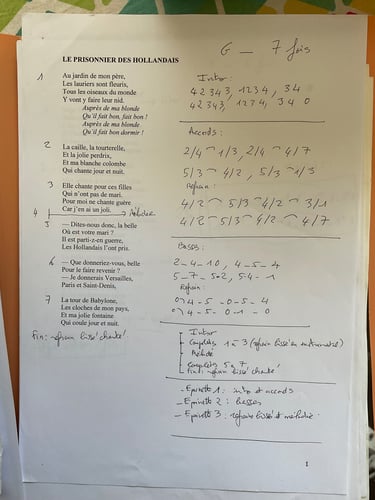 G — 7 fois
LE PRISONNIER DES HOLLANDAIS
1
Au jardin de mon père,
Les lauriers sont fleuris,
Tous les oiseaux du monde
Y vont y faire leur nid.
Auprès de ma blonde
Qu'il fait bon, fait bon !
Auprès de ma blonde
Qu'il fait bon dormir !
2
La caille, la tourterelle,
Et la jolie perdrix,
Et ma blanche colombe
Qui chante jour et nuit.
3
Elle chante pour ces filles
Qui n'ont pas de mari.
Pour moi ne chante guère
Car j'en ai un joli.
4
5
— Dites-nous donc, la belle
Où est votre mari ?
Il est parti-z-en guerre,
Les Hollandais l'ont pris.
6
— Que donneriez-vous, belle
Pour le faire revenir ?
— Je donnerais Versailles,
Paris et Saint-Denis,
7
La tour de Babylone,
Les cloches de mon pays,
Et ma jolie fontaine
Qui coule jour et nuit.
Fin : refrain bissé chanté
Intro :
4 2 3 4 3, 1 2 3 4, 3 4
4 2 3 4 3, 1 2 3 4, 3 4 0
Accords :
2/4 ⌒ 1/3, 2/4 ⌒ 4/7
5/3 ⌒ 4/2, 5/3 ⌒ 1/3
Refrain :
4/2 ⌒ 5/3 ⌒ 4/2 ⌒ 3/1
4/2 ⌒ 5/3 ⌒ 4/2 ⌒ 4/7
Basses :
2 - 4 - 1 0, 4 - 5 - 4
Refrain :
Intro
Couplets 1 à 3
Couplets 5 à 7
Fin : refrain bissé chanté
- Epinette 1 : intro et accords
- Epinette 2 : basses
- Epinette 3 : refrain bissé et mélodie
1